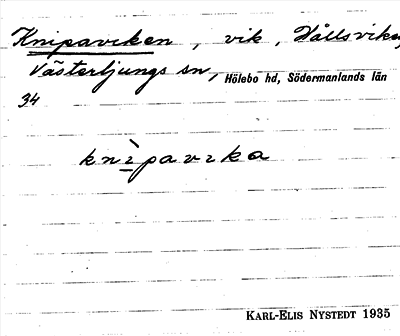 Knipaviken, vik, Hållsviken,
Västerljungs sn, Hölebo hd, Södermanlands län
34
knìpavıka
KARL-ELIS NYSTEDT 1935